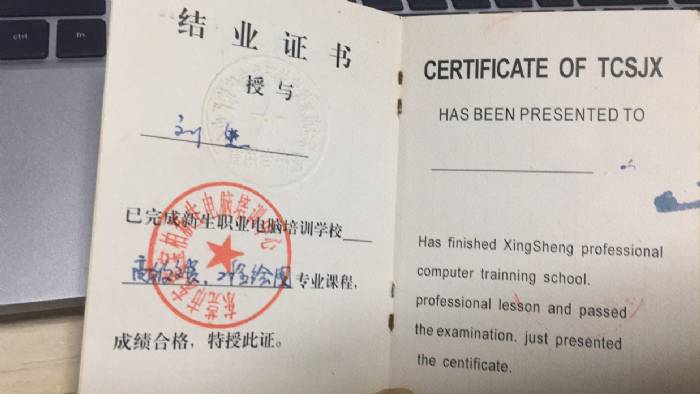 ctrl
fn
结业证书
授与
刘
已完成新生职业电脑培训学校
专业课程,
成绩合格,特授此证。
CERTIFICATE OF TCSJX
HAS BEEN PRESENTED TO
Has finished XingSheng professional
computer trainning school.
professional lesson and passed
the examination, just presented
the centificate.